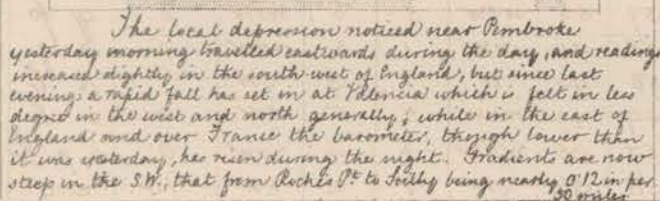 The local depression noticed near Pembroke
yesterday morning travelled eastwards during the day, and readings
increased slightly in the south west of England, but since last
evening a rapid fall has set in at Valencia which is felt in less
degree in the west and north generally; while in the east of
England and over France the barometer, though lower than
it was yesterday, has risen during the night. Gradients are now
steep in the S.W., that from Roches Pt. to Scilly being nearly 0.12 in per
50 miles